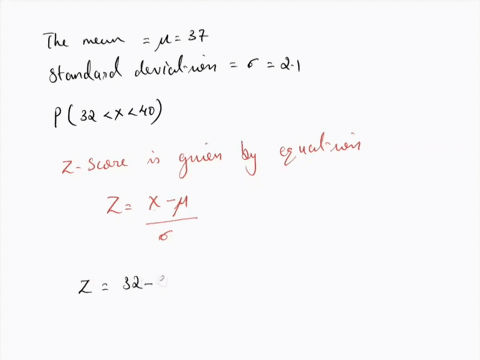 The mean = μ = 37
Standard deviation = σ = 2.1
P(32 < x < 40)
Z-score is given by equation
Z = x - μ / σ
Z = 32 -